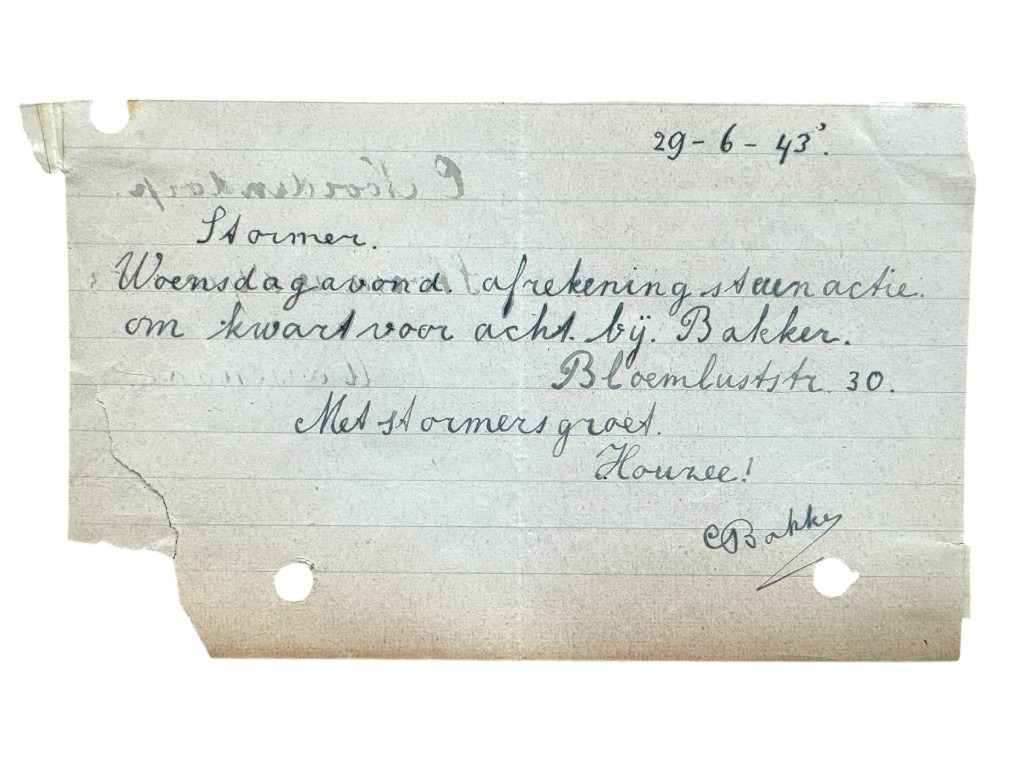 29-6-43'.
Stormer.
Woensdagavond. afrekening steunactie.
om kwart voor acht. bij. Bakker.
Bloemluststr. 30.
Met stormersgroet.
Houzee!
CBakker